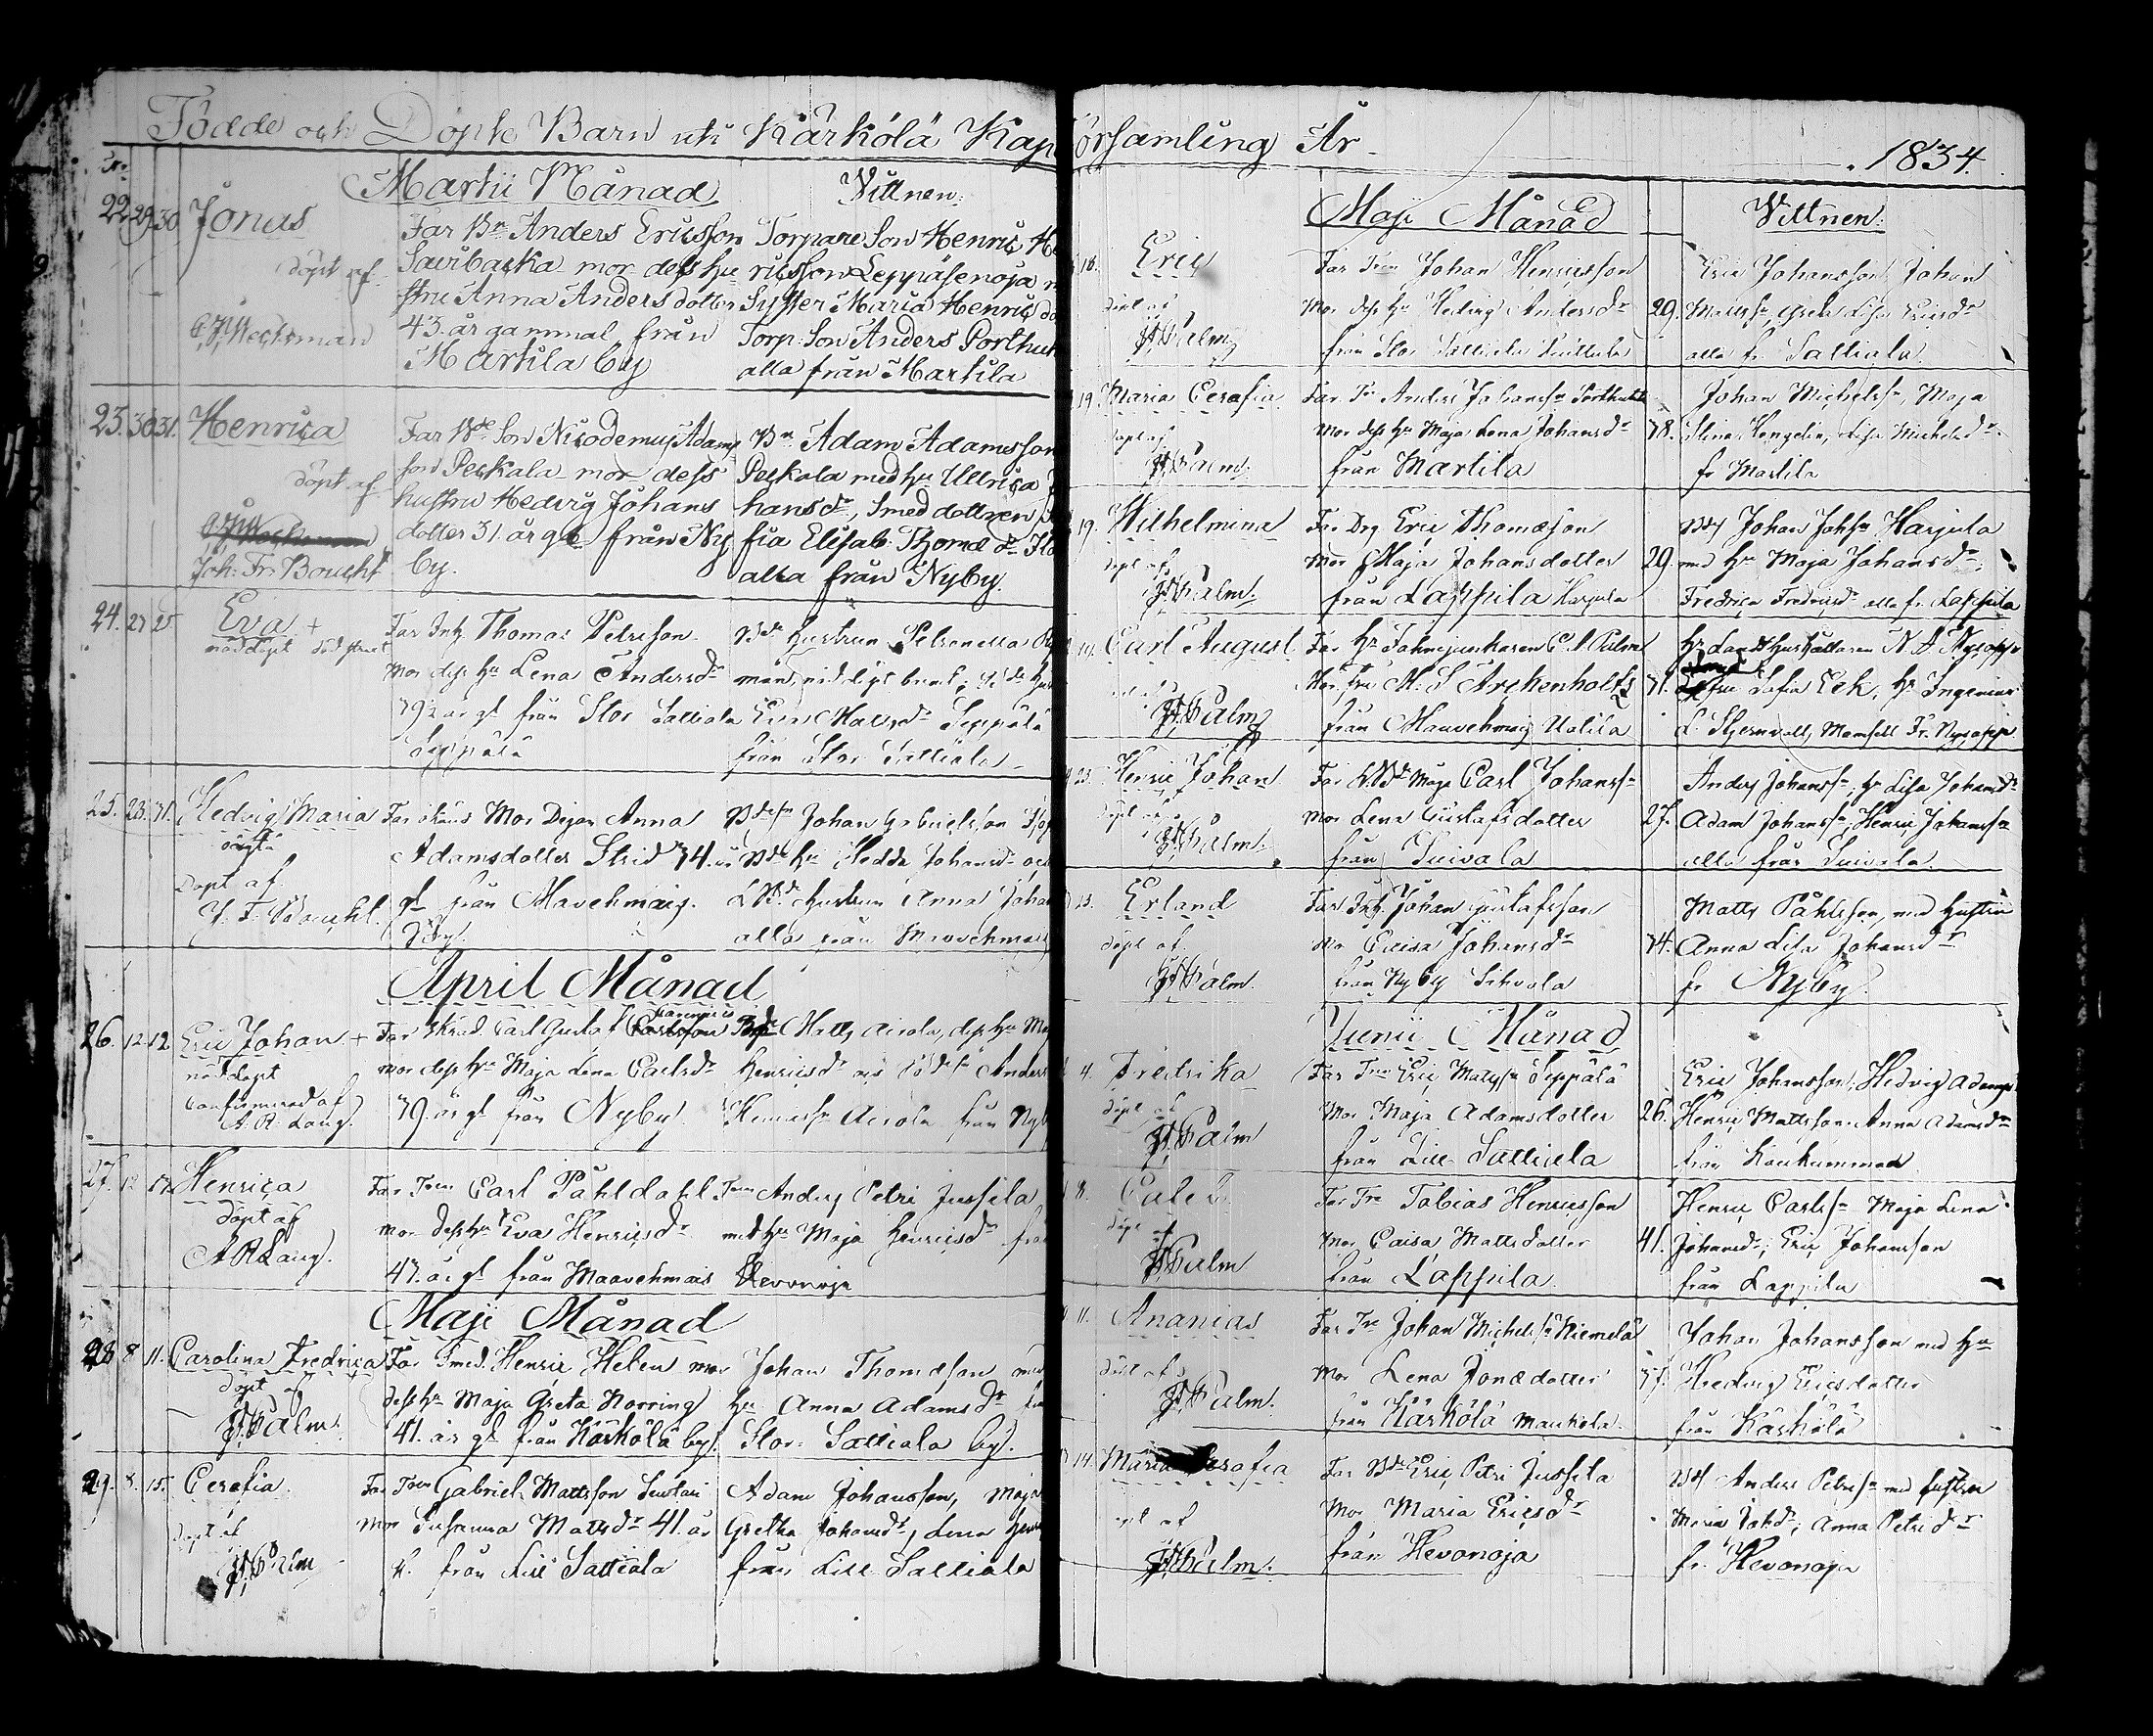 Födde och Döpte Barn uti Kärkölä Kap
No
Martii Månad Vittnen:
22. 29. 30 Jonas
döpt af
Far Bn Anders Ericsson
Savibacka mor dess hu
stru Anna Anders dotter
43. år gammal från
Markila by
Torpare Son Henric He
ricsson Leppäsenoja
Syster Maria Henrics do
Torp. Son Anders Porthu
alla från Markila
23. 30 31. Henrica
döpt af
Joh: Fr: Boucht
Far Bde Son Nicodemus Adams
son Peckala mor dess
hustru Hedvig Johans
dotter 31. år gl från Ny
by.
Bn Adam Adamsson
Peckala med hu Ullrica
hans dr, Smed dottren
fia Elisab: Thomæ dr
alla från Nyby.
24. 27 Eva +
nöddöpt död straxt
Far Inh. Thomas Petersson
Mor dess hu Lena Andersdr
39½ år gl från Stor Sattiala
Seppälä
Bde hustrun Petronella
Eva Matts dr Seppälä
från Stor Sattiala
25. 23. 31. Hedvig Maria
oägta
Döpt af
J. F. Boucht.
Far okänd Mor Pigan Anna
Adamsdotter Strid 34. år
gl från Mavehmais.
By.
Bdesn Johan Gabrielsson
Bde hu Hedda Johansdr och
LBde hustrun Anna Johan
alla från Mavehmais
April Månad
26. 12 12 Eric Johan +
nöddöpt
Confirmerad af
A. R. Lang.
Far Skräd. Carl Gustaf Carlsson
mor dess hu Maja Lena Carlsdr
39. år gl från Nyby
Matts Airola, dess hu Ma
Henricsdr och Bdesn Anders
Henricsn Airola från Nyby
27. 12 17. Henrica
döpt af
A R Lang.
Far Torp Carl Påhldahl
mor dess hu Eva Henricsdr
47. år gl från Maavehmais
Torp Anders Petri Jussila
med hu Maja Henricsdr från
Hevonoja
Maji Månad
28 8 11. Carolina Fredrica
döpt af
Palm.
Far Smed. Henric Helen mor
dess hu Maja Greta Norring
41. år gl från Kärkölä by.
Johan Thomasson med
hu Anna Adams dr från
Stor Sattiala by.
29. 8. 15. Cerafia.
döpt af
Palm
Far Torp Gabriel Mattsson
Mor Susanna Matts dr 41. år
g. från Lill Sattiala
Adam Johansson, Maja
Gretha Johansdr, Lena Henr
från Lill Sattiala
örsamling År 1834.
Maji Månad Vittnen:
18. Eric
döpt af
Palm
Far Torp Johan Henricsson
Mor dess hu Hedvig Andersdr
från Stor Sattiala
29.
Eric Johansson, Johan
Mattssn, Greta Lisa Ericsdr
alla fr Sattiala.
19. Maria Cerafia
döpt af
Palm.
Far Tor Anders Johanssn Porthula
Mor dess hu Maja Lena Johansdr
från Markila
38.
Johan Michelssn, Maja
Stina Hengelin, Lisa Michelsdr
fr Markila
19. Wilhelmina
döpt af
Palm.
Far Drg Eric Thomæson
Mor Maja Johansdotter
från Lappila Harjula
29.
Bde Johan Johssn Harjula
med hu Maja Johansdr,
Fredrica Fredricsdr alla fr Lappila
Carl August
Palm
Far Hr Fanejunkaren C. A. Palm
Mor Fru M. S. Archenholtz
från Mauvehmais Uotila
31.
Hr Landthushållaren N. A. Nysopp
fru Sofia Eek, Hr Ingeniur
L. Stjernvall, Mamsell Fr. Nysopp
23. Henric Johan
döpt af
Palm.
Far LBde Måg Carl Johanssn
mor Lena Gustafsdotter
från Suivala
27.
Anders Johanssn, hu Lisa Johansdr
Adam Johanssn, Henric Johanssn
alla från Suivala.
23. Erland
döpt af
Palm.
Far Inh. Johan Gustafsson
Mor Caisa Johansdr
från Nyby
34.
Matts Påhlsson, med hustru
Anna Lisa Johansdr
fr Nyby.
Junii Månad
4. Fredrika
döpt af
Palm
Far Torp Eric Matssn Seppälä
Mor Maja Adamsdotter
från Lill Sattiala
26.
Eric Johansson, Hedvig Adamsdr
Henric Mattsson, Anna Adamsdr
från Koukunmaa
8. Caleb.
döpt af
Palm
Far Tor Tobias Henricsson
Mor Caisa Mattsdotter
från Lappila.
41.
Henric Carlssn Maja Lena
Johansdr, Eric Johansson
från Lappila
11. Ananias
döpt af
Palm.
Far Tor Johan Michelssn Niemelä
Mor Lena Jonædotter
från Kärkölä Maukola.
37.
Johan Johansson med hu
Hedvig Ericsdotter
från Kärkölä
14. Maria Cerafia
döpt af
Palm.
Far Bde Eric Petri Jussila
Mor Maria Ericsdr
från Hevonoja
Bde Anders Peterssn med hustru
Maria Johdr, Anna Petri dr
fr. Hevonoja